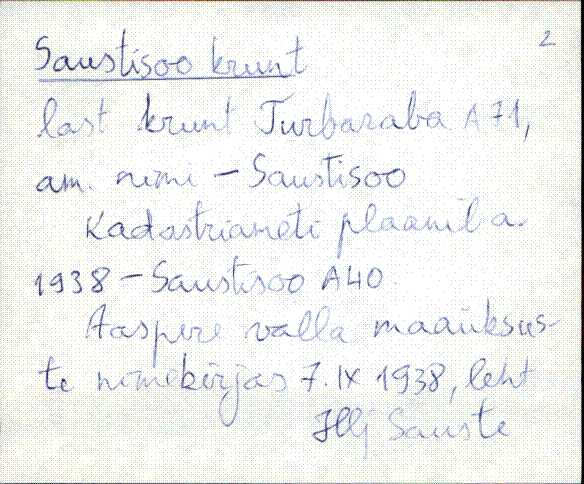 2
Saustisoo krunt
last krunt Turbaraba A 71,
am. nimi – Saustisoo
Kadastriameti plaanil a.
1938 – Saustisoo A40.
Aaspere valla maaüksus-
te nimekirjas 7. IX 1938, leht
Sauste